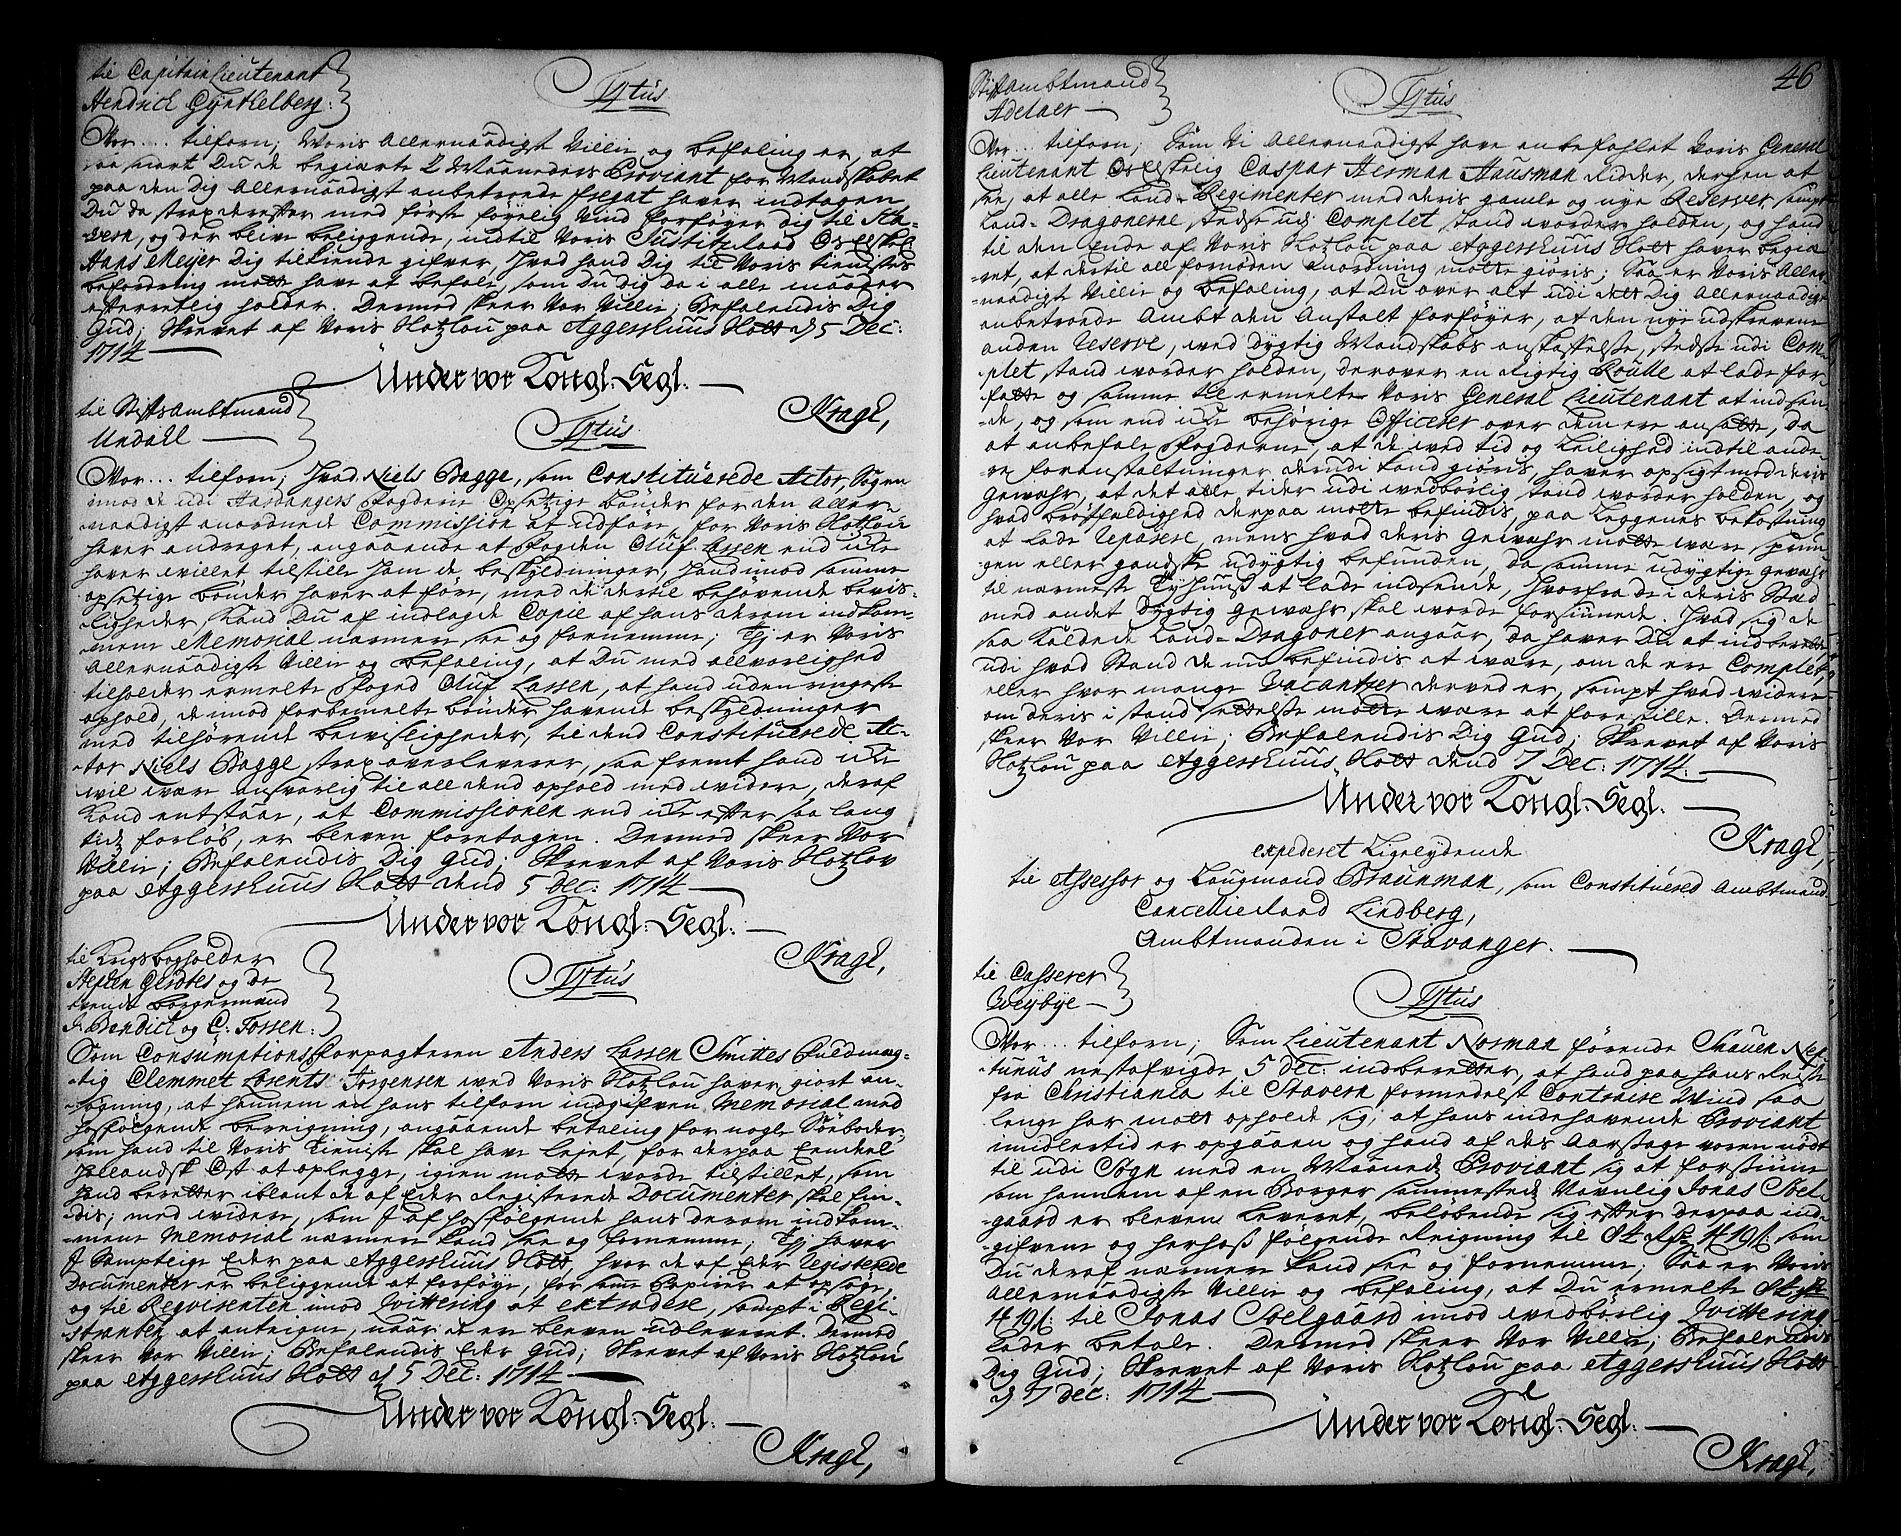 til Capitain Lieutenant
Hendrich Gynthelberg:
Tytus
Vor ... tilforn; Voris Allernaadigst Villie og befaling er, at
saa snart Du de begiærte 2 Maaneders Proviant for Mandskabet
paa den Dig Allernaadigst anbetroede fregat haver indtagen
Du da strax derefter med første føyelig Vind forføyer dig til Sta-
vern, og der blive beliggende, indtil Voris Justitzraad Os Elskel:
Hans Meyer Dig tilkiende gifver, hvad hand Dig til Voris tienistes
befordring motte have at befale, som Du dig da i alle maader
efterretlig holder. Dermed skeer Vor Villie; Befalendis Dig
Gud; Skrevet af Voris Slotzlou paa Aggershuus Slott d 5 Dec:
1714
Under vor Kongl: Segl.
Kragh,
til Stiftsambtmand
Undall
Tytus
Vor ... tilforn; Hvad Niels Bagge, som Constituerede Actor, Sagen
imod de udi Hardangers fogderie Opsetzige bønder for den Aller-
naadigst anordnede Commission at udføre, for Voris Slotzlou
haver andraget, angaaende at fogden Oluf Lassen end icke
haver villet tilstille ham de beskyldninger, hand imod samme
opsetzige bønder haver at føre, med de dertil behøvende bevis-
ligheder, kand Du af indlagde Copie af hans derom indkom-
mene Memorial nærmere see og fornemme; Thj er Voris
Allernaadigste Villie og befaling, at Du med allvorlighed
tilholder ermelte foged Oluf Lassen, at hand uden ringeste
ophold, de imod forbemelte bønder havende beskyldninger
med tilhørende bevisligheder, til dend Constituerede Ac-
tor Niels Bagge, strax overleverer, saa fremt hand icke
vil være ansvarlig til all dend ophold med videre, deraf
kand entstaar, at Commissionen end icke efter saa lang
tidz forløb, er bleven foretagen. Dermed skeer Vor
Villie; Befalendis Dig Gud; Skrevet af Voris Slotzlov
paa Aggershuus Slott dend 5 Dec: 1714
Under vor Kongl: Segl.
Kragh,
til Krigsbogholder
Steffen Gerdtes og de
tvende borgermænd
J. Bendich og C. Tossen:
Tytus
Som Consumptions forpagteren Anders Lassen Smittes fuldmæg-
tig Clemmet Lorents Jørgensen ved Voris Slotzlou haver giort an-
søgning, at hannem en hans tilforn indgifven Memorial med
hosfølgende beregning, angaaende betaling for nogle Søeboder,
som hand til Voris tieniste skal have lejet, for derpaa Eendeel
hollandsk Ost at oplegge, igien motte vorde tilstillet, som
hand beretter iblant de af Eder Registerede Documenter skal fin-
dis; med videre, som J af hosfølgende hans derom indkom-
mene Memorial nærmere kand see og fornemme; Thj haver
J Samptlige Eder paa Aggershuus Slott, hvor de af Eder Registerede
Documenter er beliggende at forføye, for samme Papirer at opsøge,
og til Reqvirenten imod Qvittering at extradere, sampt i Regi-
sterings at antegne, naar de er bleven udleveret. Dermed
skeer Vor Villie; Befalendis Eder Gud; Skrevet af Voris Slotzlou
paa Aggershuus Slott d 5 Dec: 1714
Under vor Kongl: Segl.
Kragh,
46
Stiftsambtmand
Adelaer
Tytus
Vor ... tilforn; Som Vi Allernaadigst have anbefahlet Voris General
Lieutenant Os Elskelig Caspar Herman Hausman Ridder, derhen at
see, at alle Land-Regimenter med deris gamle og nye Reserver, sampt
Land-Dragonerne, stedse udj Complet stand vorder holden, og hand
til den Ende af Voris Slotzlou paa Aggershuus Slott haver begiæ-
ret, at dertil all fornøden Anordning motte giøris; Saa er Voris Aller-
naadigste Villie og Befaling, at Du over alt udi dett Dig Allernaadigst
anbetroede Ambt den Anstalt forføyer, at den nye udskrevene
anden Reserve, med dygtig Mandskabs anskaffelse, stedse udi Com-
plet stand vorder holden, derover en Rigtig Roulle at lade for-
fatte og samme til ermelte Voris General Lieutenant at indsen-
de, og som end icke behørige Officerer over dem ere ansatte, da
at anbefale fogderne, at de ved tid og Leilighed indtil ande-
re foranstaltninger derudi kand giøris, haver opsigt med deris
Gewahr, at det alle tider udi wedbørlig stand vorder holden, og
hvad brøstfeldighed derpaa motte befindis, paa Leggenes bekostning
at lade Reparere, mens hvad deris Gewahr motte være sprun-
gen eller gandske udygtig befunden, da samme udygtige Gewahr
til nærmeste Tyhuus at lade indsende, hvorfra de i deris Sted
med andet dygtig gewahr skal vorde forsiunede. Hvad sig de
saa kaldede Land-Dragoner angaar, da haver Du at indberette
udi hvad Stand de nu befindis at være, om de ere Complet,
eller hvor mange Vacantzer derved er, sampt hvad videre
om deris i stand settelse motte være at forestille. Dermed
skeer Vor Villie; Befalendis Dig Gud; Skrevet af Voris
Slotzlou paa Aggershuus Slott dend 7 Dec: 1714.
Under vor Kongl: Segl.
Kragh,
expederet Ligelydende
til Assessor og Laugmand Braunman, som Constituered Ambtmand
Cancellieraad Lindberg,
Ambtmanden i Stavanger.
til Casserer
Weybye
Tytus
Vor ... tilforn; Som Lieutenant Norman førende Skauen Nep-
tunus nestafvigde 5 Dec: indberetter, at hand paa hans Reise
fra Christiania til Stavern formedelst Contraire Wind saa
lenge har mott opholde sig, at hans indehavende Proviant
imidlertid er opgaaen og hand af des Aarsage voren nødt
til udi Sogn med en Maaned Proviant sig at forsiune
som hannem af en Borger sammesteds Navnlig Jonas Soel-
gaard er bleven Leveret, beløbende sig efter derpaa ind-
gifvene og herhos følgende Reigning til 84 Rdr 4 19 s: som
Du deraf nærmere kand see og fornemme; Saa er Voris
Allernaadigste Villie og befaling, at Du ermelte 84 Rdr
4 19 s: til Jonas Soelgaard imod wedbørlig Qvittering
Lader betale. Dermed skeer Vor Villie; Befalendis
Dig Gud; Skrevet af Voris Slotzlou paa Aggershuus Slott
d 7 Dec: 1714
Under vor Kongl: Segl.
Kragh,